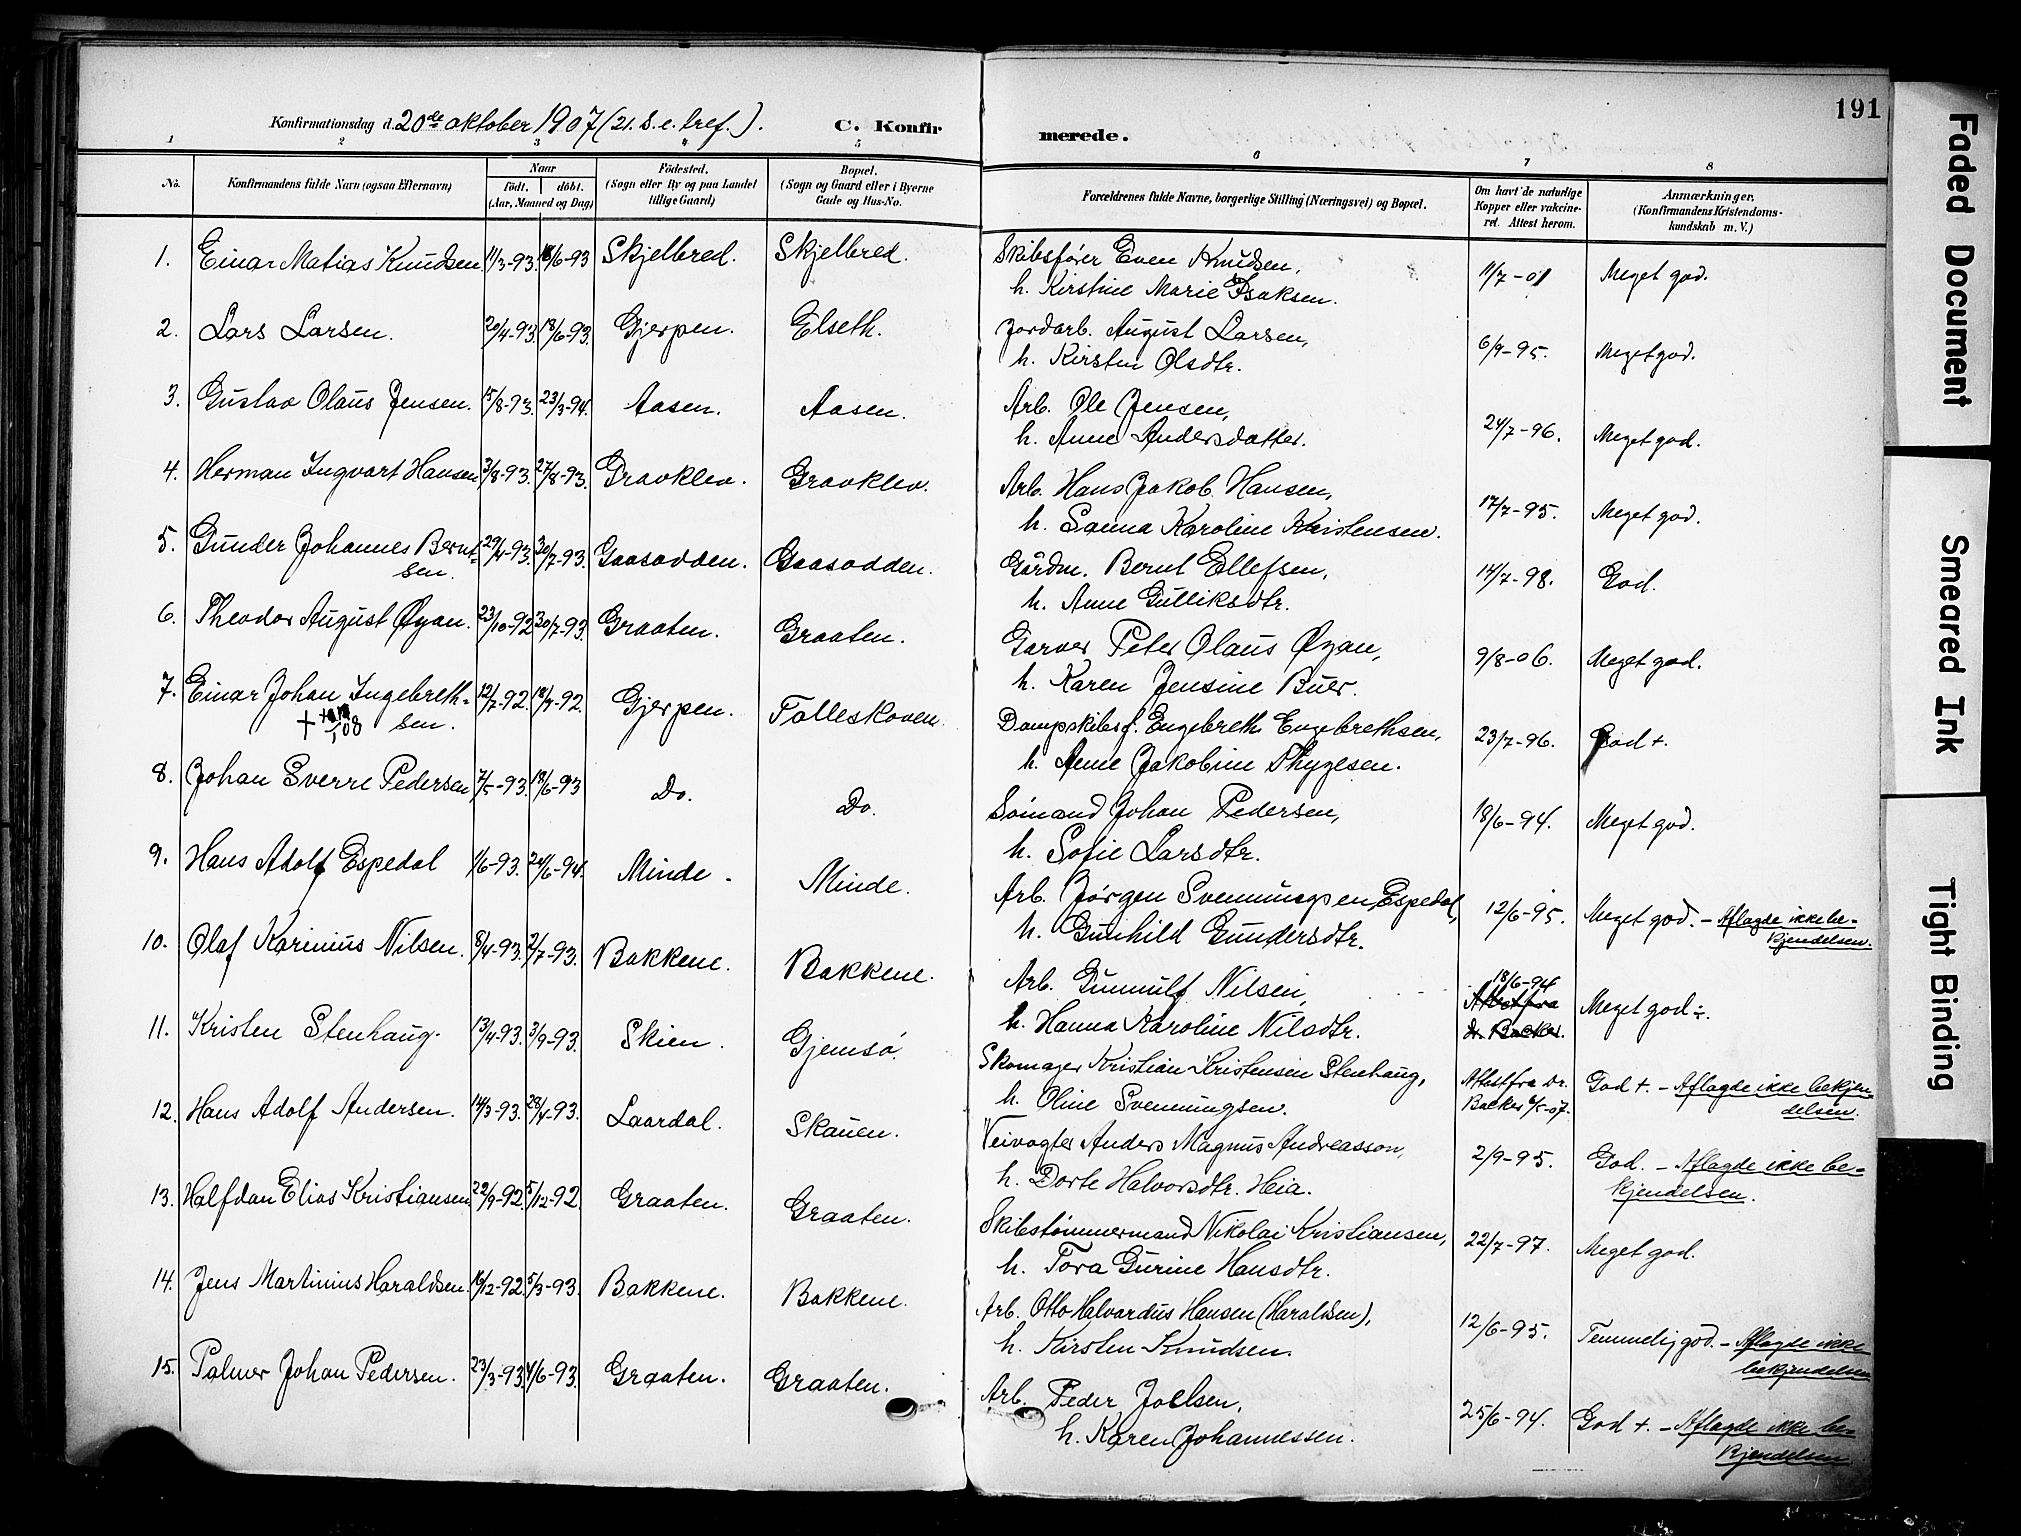 191
Konfirmationsdag d. 20de oktober 1907 (21. S. e. tref.). C. Konfirmerede.
1 2 3 4 5 6 7 8
No. Konfirmandens fulde Navn (ogsaa Efternavn) Naar født. døbt. (Aar, Maaned og Dag) Fødested. (Sogn eller By og paa Landet tillige Gaard) Bopæl. (Sogn og Gaard eller i Byerne Gade og Hus-No. Forældrenes fulde Navne, borgerlige Stilling (Næringsvei) og Bopæl. Om havt de naturlige Kopper eller vaccineret. Attest herom. Anmærkninger. (Konfirmandens Kristendomskundskab m. V.)
1. Einar Matias Knudsen 11/3-93. 18/6-93 Skjelbred. Skjelbred. Skibsfører Even Knudsen, 11/7-01 Meget god.
h. Kirstine Marie Isaksen.
2. Lars Larsen. 20/4-93. 18/6-93. Gjerpen. Elseth. Jordarb. August Larsen, 6/9-95. Meget god.
h. Kirsten Olsdtr.
3. Gustav Olaus Jensen. 15/8-93. 23/3-94. Aasen. Aasen. Arb. Ole Jensen, 24/7-96. Meget god.
h. Anne Andersdatter.
4. Herman Ingvart Hansen 3/8-93. 27/8-93. Gravklev. Gravklev. Arb. Hans Jakob Hansen, 17/7-95. Meget god.
h. Sanna Karoline Kristensen.
5. Gunder Johannes Berntsen. 29/4-93. 30/7-93. Gaasodden. Gaasodden. Gårdm. Bernt Ellefsen, 14/7-98. God.
h. Anne Gulliksdtr.
6. Theodor August Øyan. 23/10-92 30/7-93. Graaten. Graaten. Garver Peter Olaus Øyan, 9/8-06. Meget god.
h. Karen Jensine Buer.
7. Einar Johan Ingebrethsen. 12/7-92. 18/9-92. Gjerpen. Falleskoven. Dampskibsf. Engebreth Engebrethsen, 23/7-96. God +.
h. Anne Jakobine Thygesen.
8. Johan Sverre Pedersen 7/5-93. 18/6-93 Do. Do. Sømand Johan Pedersen, 18/6-94. Meget god.
h. Sofie Larsdtr.
9. Hans Adolf Espedal 1/6-93. 24/6-94. Minde. Minde. Arb. Jørgen Svenningsen Espedal, 12/6-95. Meget god. - Aflagde ikke bekjendelsen.
h. Gunhild Gundersdtr.
10. Olaf Karinius Nilsen. 8/4-93. 2/7-93. Bakkene. Bakkene. Arb. Gunnulf Nilsen, 18/6-94 Attest fra dr. Backer. Meget god ÷.
h. Hanna Karoline Nilsdtr.
11. Kristen Stenhaug. 13/4-93. 3/9-93. Skien. Gjemsø. Skomager Kristian Kristensen Stenhaug, Attest fra dr. Backer 6/5-07. God +. - Aflagde ikke bekjendelsen.
h. Oline Svenningsen.
12. Hans Adolf Andersen. 14/3-93. 28/4-93. Laardal. Skauen. Veivogter Anders Magnus Andreasson, 2/9-95. God. - Aflagde ikke bekjendelsen.
h. Dorte Halvorsdtr. Heia.
13. Halfdan Elias Kristiansen. 22/9-92. 5/12-92. Graaten. Graaten. Skibstømmermand Nikolai Kristiansen, 22/7-97. Meget god.
h. Tora Gurine Hansdtr.
14. Jens Martinius Haraldsen. 10/12-92. 5/3-93. Bakkene. Bakkene. Arb. Otto Halvardus Hansen (Haraldsen), 12/6-95. Temmelig god. - Aflagde ikke bekjendelsen
h. Kirsten Knudsen.
15. Palmer Johan Pedersen. 23/3-93. 4/6-93. Graaten. Graaten. Arb. Peder Joelsen, 25/6-94. God +. - Aflagde ikke bekjendelsen
h. Karen Johannessen.
Faded Document
Smeared Ink
Tight Binding